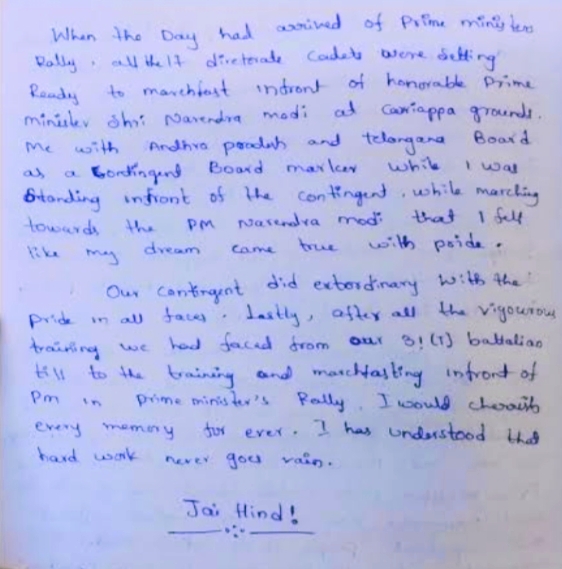 When the Day had arrived of Prime minister
Rally, all the 17 diretorate Cadets were Setting
Ready to marchfast infront of honorable Prime
minister Shri Narendra modi at Cariappa grounds.
Me with Andhra pradesh and telangana Board
as a Contingent Board marker while I was
Standing infront of the contingent, while marching
towards the PM Narendra modi that I felt
like my dream came true with pride.
Our contingent did extordinary with the
pride in all faces. Lastly, after all the vigourous
training we had faced from our 31(T) battalian
till to the training and marchfasting infront of
Pm in prime minister's Rally. I would cherish
every memory for ever. I has understood that
hard work never goes vain.
Jai Hind!